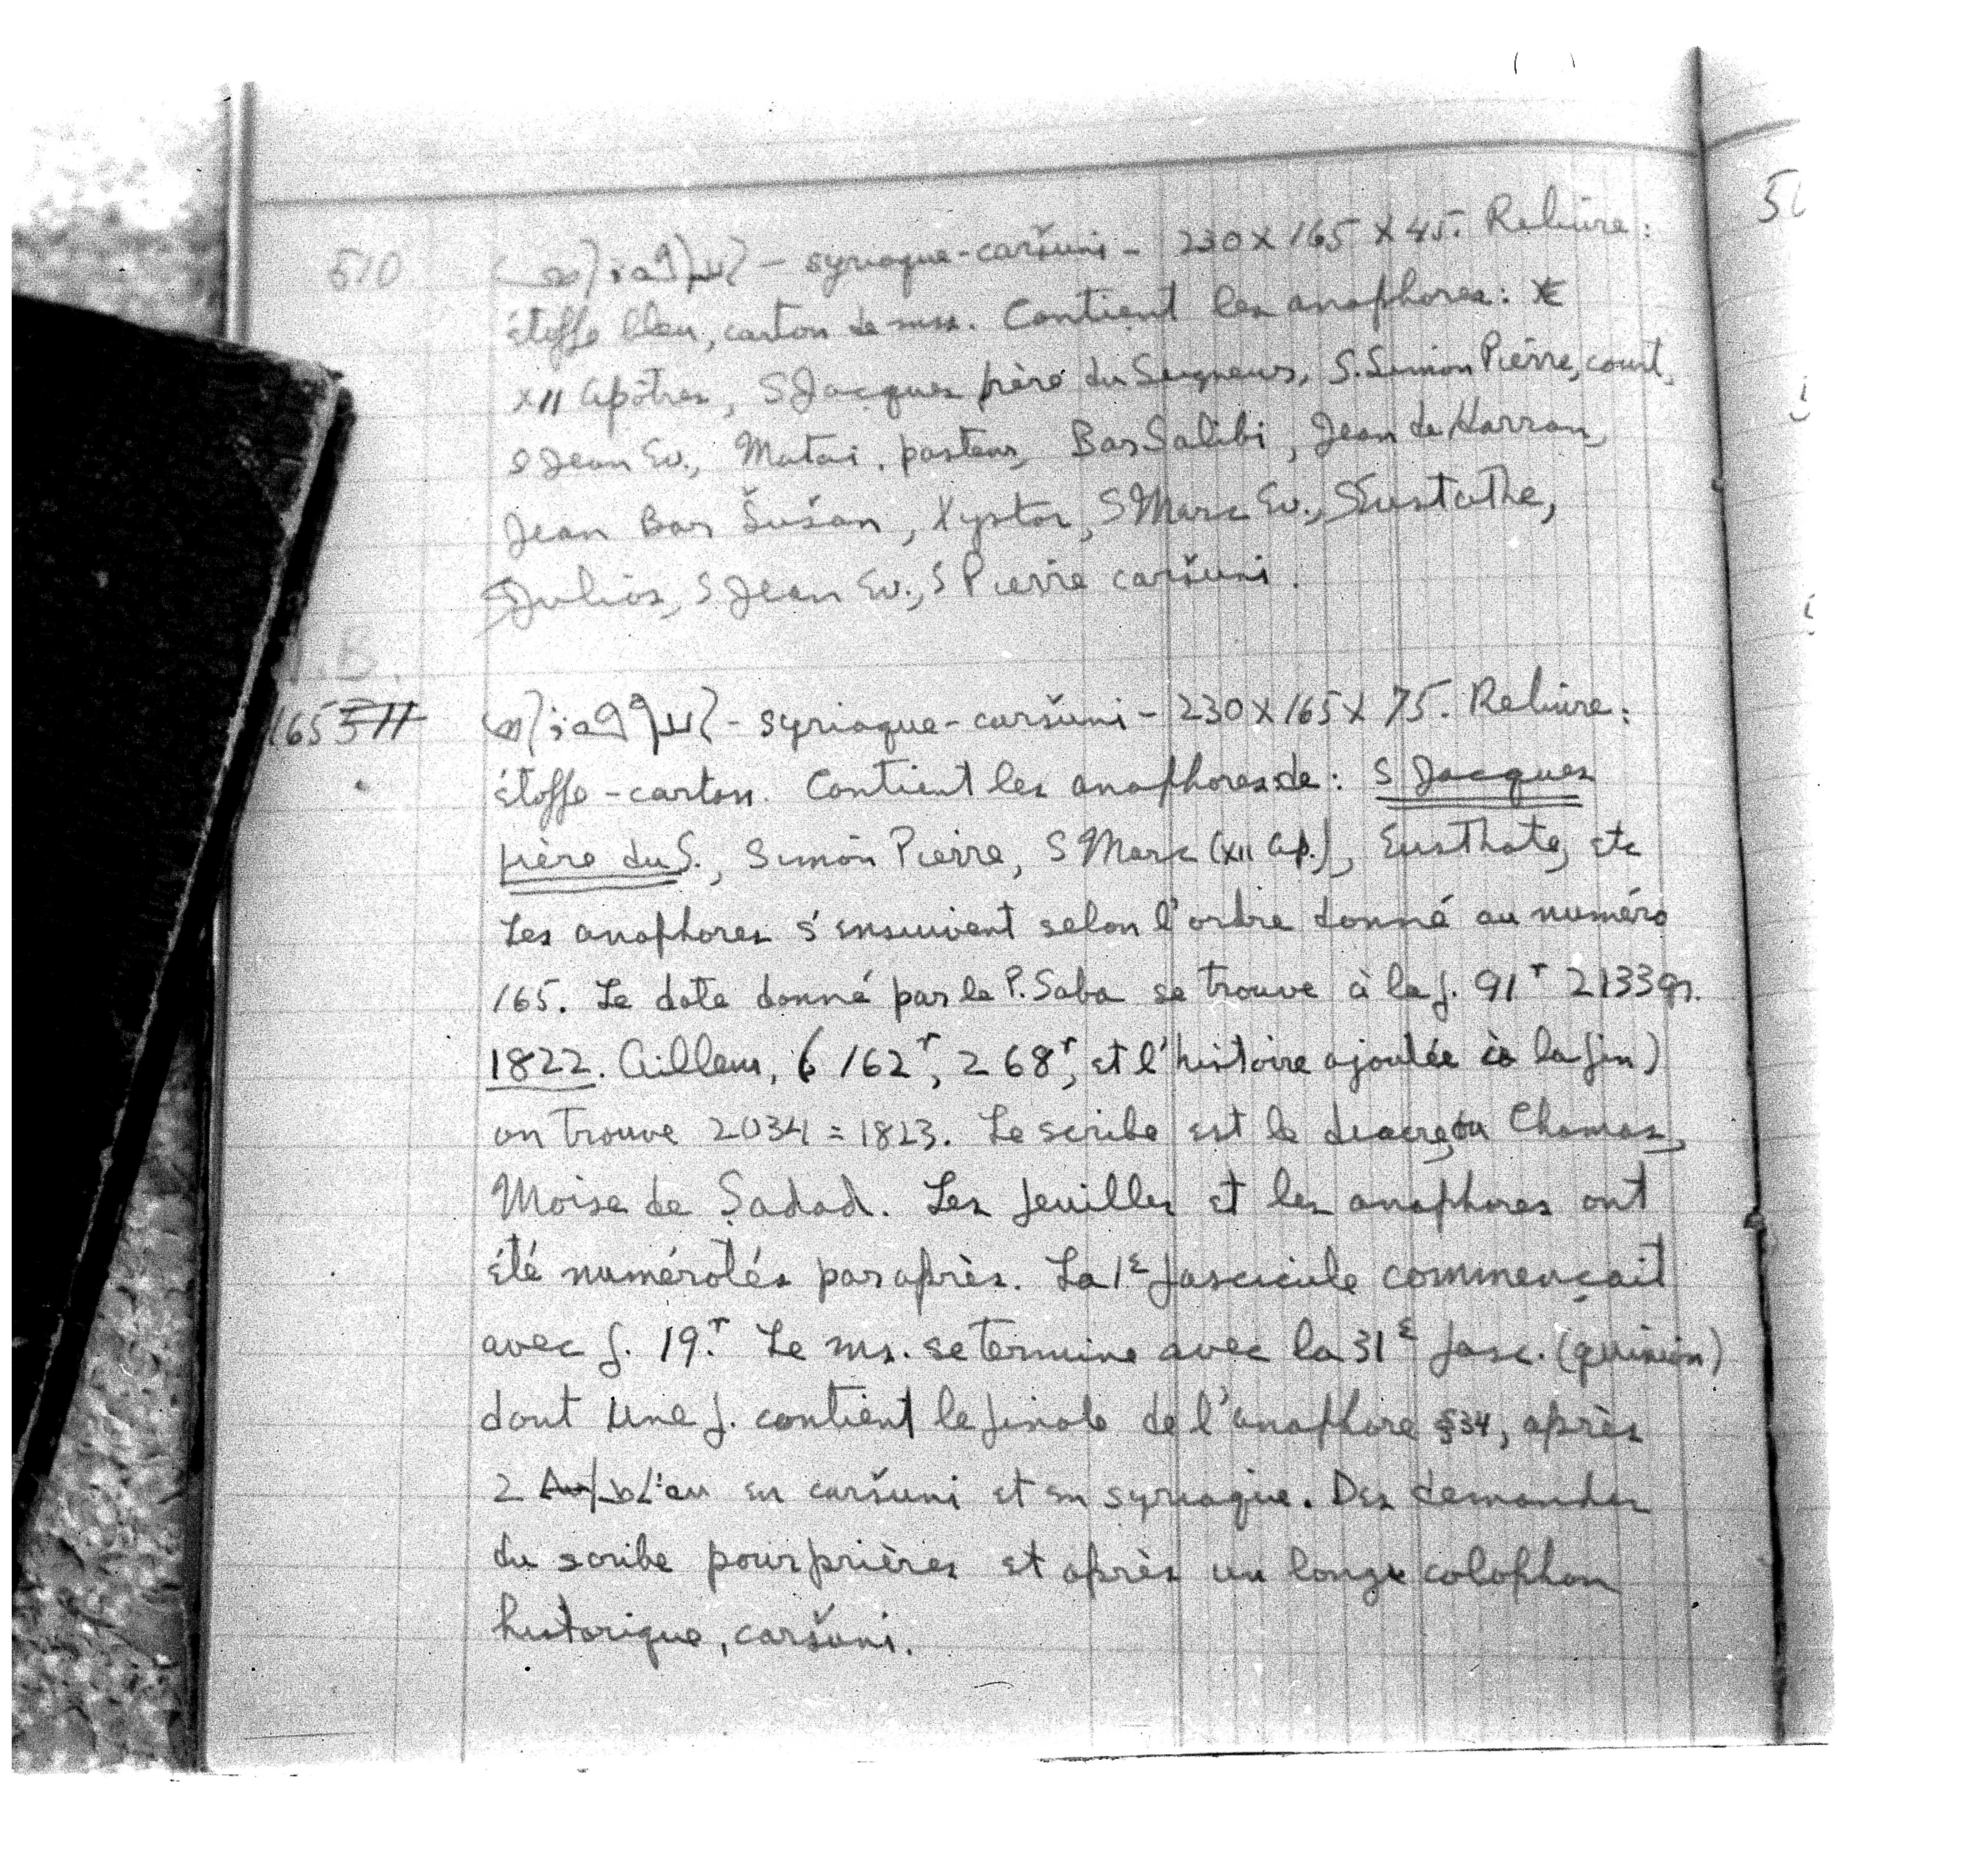 510 ܐܢܐܦܘܪܐܣ - syriaque-caršuni - 230 x 165 x 45. Reliure:
étoffe bleu, carton de mss. Contient les anaphores:
XII Apôtres, S Jacques frère du Seigneur, S. Simon Pierre, court,
S Jean Ev., Matai, pasteur, Bar Salibi, Jean de Harran,
Jean Bar Šušan, Xystos, S Marc Ev., S Eustathe,
Julios, S Jean Ev., S Pierre caršuni.
A.B.
165 511 ܐܢܐܦܘܪܐܣ - syriaque-caršuni - 230 x 165 x 75. Reliure:
étoffe-carton. Contient les anaphores de: S Jacques
frère du S., Simon Pierre, S Marc (XII Ap.), Eusthate, etc
Les anaphores s'ensuivent selon l'ordre donné au numéro
165. Le date donné par le P. Saba se trouve à la f. 91r 2133 gr.
1822. Ailleurs, (162r, 268r, et l'histoire ajoutée à la fin)
on trouve 2034 = 1823. Le scribe est le diacre, ou Chamas,
Moise de Ṣadad. Les feuilles et les anaphores ont
été numérotés par après. La 1e fascicule commençait
avec f. 19r. Le ms. se termine avec la 31e fasc. (quinion)
dont une f. contient le finale de l'anaphore §34, après
2 en caršuni et en syriaque. Des demandes
du scribe pour prières et après un long colophon
historique, caršuni.